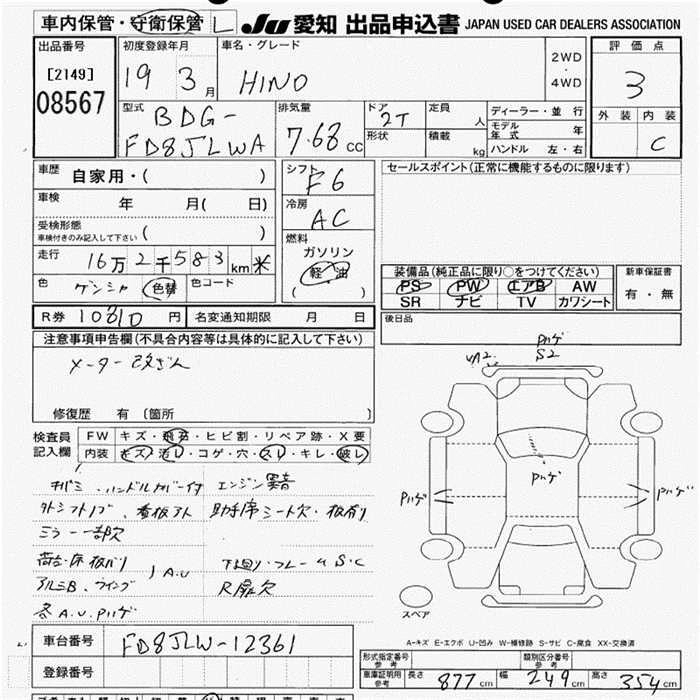 車内保管・守衛保管 L JU 愛知 出品申込書 JAPAN USED CAR DEALERS ASSOCIATION
出品番号
[2149]
08567
初度登録年月
19 3月
車名・グレード
HINO
2WD
・
4WD
評価点
3
外装 内装
C
型式
BDG-
FD8JLWA
排気量
7.68 CC
ドア
2T
形状
定員
人
積載
kg
ディーラー・並行
モデル年式 年
ハンドル 左・右
車歴 自家用・( )
車検 年 月( 日)
受検形態
車検付きのみ記入して下さい ( )
走行 16万2千583km 米
色 ゲンシャ 色替 色コード
シフト
F6
冷房
AC
燃料
ガソリン
軽油
( )
セールスポイント(正常に機能するものに限ります)
装備品(純正品に限り○をつけてください)
PS PW エアB AW
SR ナビ TV カワシート
新車保証書
有・無
R券 10810円 名変通知期限 月 日
後日品
注意事項申告欄(不具合内容等は具体的に記入して下さい)
メーター改ざん
修復歴 有 (箇所 )
検査員
記入欄
FW キズ・飛石・ヒビ割・リペア跡・X要
内装 キズ・汚レ・コゲ・穴・スレ・キレ・破レ
ハンドルカバー付 エンジン異音
外シフトノブ、看板アト 助手席シート欠・板割リ
ミラー一部欠
荷台・床板バリ A.U 下回リ・フレームS・C
アルミB、ウイング R扉欠
各A.U.Pハゲ
Pハゲ
S2
Pハゲ
Pハゲ
Pハゲ
スペア
A-キズ E-エクボ U-凹み W-補修跡 S-サビ C-腐食 XX-交換済
車台番号 FD8JLW-12361
登録番号
型式指定番号
参考
類別区分番号
参考
車庫証明用
参考
長さ 877cm 幅 249cm 高さ 354cm